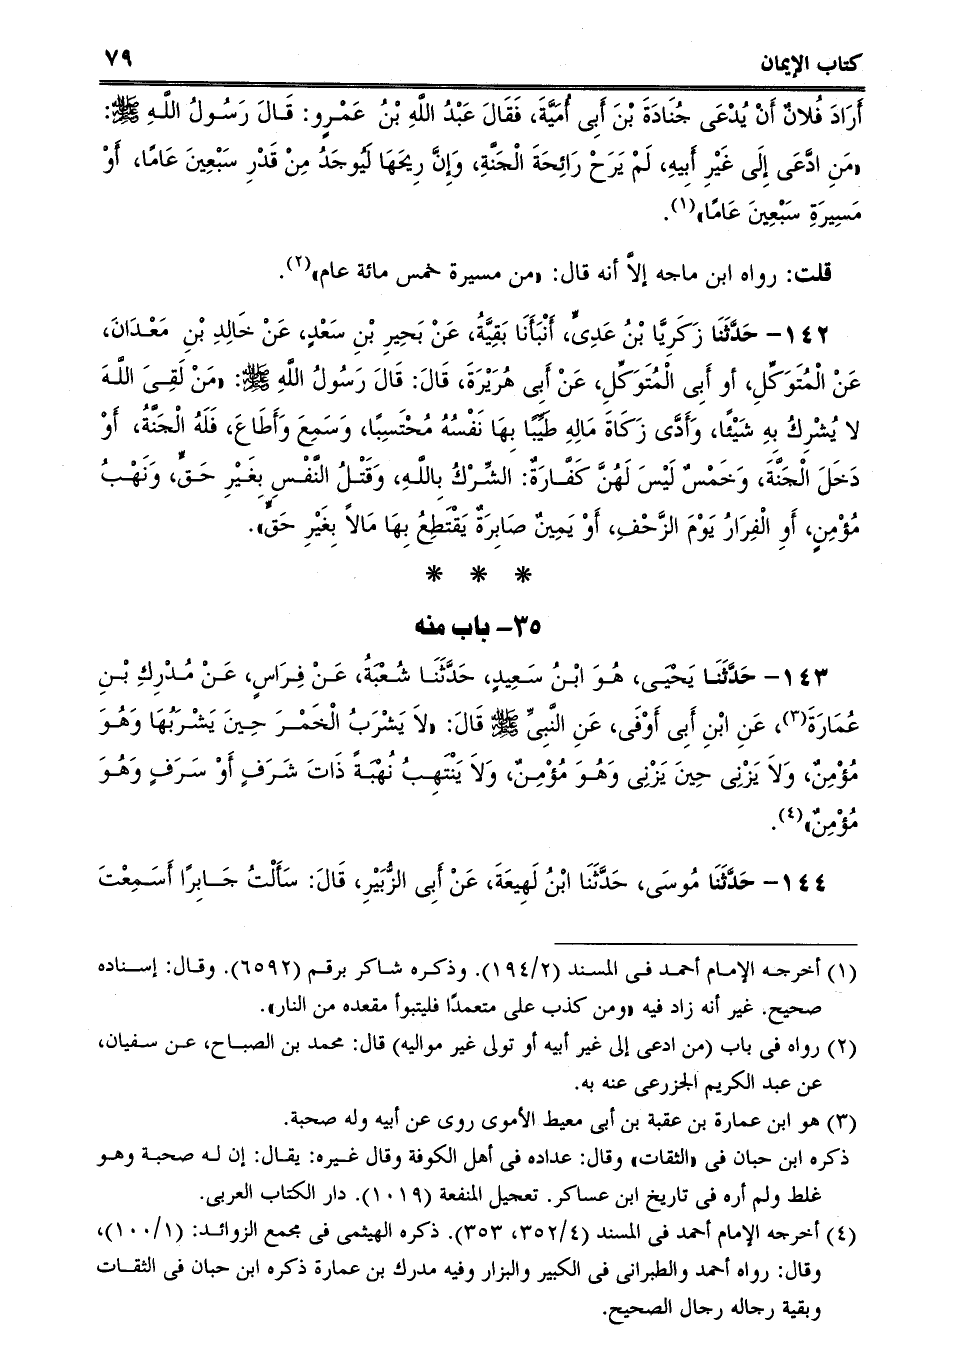 كتاب الإيمان ٧٩
أَرَادَ فُلانٌ أَنْ يُدْعَى جُنَادَةَ بْنَ أَبِى أُمَيَّةَ، فَقَالَ عَبْدُ اللَّهِ بْنُ عَمْرٍو: قَـالَ رَسُـولُ اللَّـهِ ﷺ:
«مَنِ ادَّعَى إِلَى غَيْرِ أَبِيهِ، لَمْ يَرَحْ رَائِحَةَ الْجَنَّةِ، وَإِنَّ رِيحَهَا لَيُوجَدُ مِنْ قَدْرِ سَبْعِينَ عَامًا، أَوْ
مَسِيرَةِ سَبْعِينَ عَامًا»(١).
قلت: رواه ابن ماجه إلاَّ أنه قال: «من مسيرة خمس مائة عام»(٢).
١٤٢- حَدَّثَنَا زَكَرِيَّا بْنُ عَدِىٍّ، أَنْبَأَنَا بَقِيَّةُ، عَنْ بَحِيرِ بْنِ سَعْدٍ، عَنْ خَالِدِ بْنِ مَعْـدَانَ،
عَنْ الْمُتَوَكِّلِ، أو أَبِى الْمُتَوَكِّلِ، عَنْ أَبِى هُرَيْرَةَ، قَالَ: قَالَ رَسُولُ اللَّهِ ﷺ: «مَنْ لَقِىَ اللَّهَ
لا يُشْرِكُ بِهِ شَيْئًا، وَأَدَّى زَكَاةَ مَالِهِ طَيِّبًا بِهَا نَفْسُهُ مُحْتَسِبًا، وَسَمِعَ وَأَطَاعَ، فَلَهُ الْجَنَّةُ، أَوْ
دَخَلَ الْجَنَّةَ، وَخَمْسٌ لَيْسَ لَهُنَّ كَفَّـارَةٌ: الشِّرْكُ بِاللَّهِ، وَقَتْلُ النَّفْسِ بِغَيْرِ حَـقٍّ، وَنَهْبُ
مُؤْمِنٍ، أَوِ الْفِرَارُ يَوْمَ الزَّحْفِ، أَوْ يَمِينٌ صَابِرَةٌ يَقْتَطِعُ بِهَا مَالاً بِغَيْرِ حَقٍّ».
* * *
٣٥- باب منه
١٤٣- حَدَّثَنَا يَحْيَى، هُـوَ ابْـنُ سَـعِيدٍ، حَدَّثَنَـا شُـعْبَةُ، عَـنْ فِـرَاسٍ، عَـنْ مُـدْرِكِ بْـنِ
عُمَارَةَ(٣)، عَنِ ابْنِ أَبِى أَوْفَى، عَنِ النَّبِىِّ ﷺ قَالَ: «لاَ يَشْرَبُ الْخَمْـرَ حِـينَ يَشْـرَبُهَا وَهُـوَ
مُؤْمِنٌ، وَلاَ يَزْنِى حِينَ يَزْنِى وَهُـوَ مُؤْمِـنٌ، وَلاَ يَنْتَهِـبُ نُهْبَةً ذَاتَ شَـرَفٍ أَوْ سَـرَفٍ وَهُـوَ
مُؤْمِنٌ»(٤).
١٤٤- حَدَّثَنَا مُوسَى، حَدَّثَنَا ابْنُ لَهِيعَةَ، عَنْ أَبِى الزُّبَيْرِ، قَالَ: سَأَلْتُ جَـابِرًا أَسَـمِعْتَ
(١) أخرجـه الإمـام أحمـد فـى المسند (١٩٤/٢). وذكـره شـاكر برقـم (٦٥٩٢). وقـال: إسـناده
صحيح. غير أنه زاد فيه «ومن كذب على متعمدًا فليتبوأ مقعده من النار».
(٢) رواه فى باب (من ادعى إلى غير أبيه أو تولى غير مواليه) قال: محمد بن الصبـاح، عـن سـفيان،
عن عبد الكريم الجزرعى عنه به.
(٣) هو ابن عمارة بن عقبة بن أبى معيط الأموى روى عن أبيه وله صحبة.
ذكره ابن حبان فى «الثقات» وقال: عداده فى أهل الكوفة وقال غـيره: يقـال: إن لـه صحبـة وهـو
غلط ولم أره فى تاريخ ابن عساكر. تعجيل المنفعة (١٠١٩). دار الكتاب العربى.
(٤) أخرجه الإمام أحمد فى المسند (٣٥٢/٤، ٣٥٣). ذكره الهيثمى فى مجمع الزوائـد: (١٠٠/١)،
وقال: رواه أحمد والطبرانى فى الكبير والبزار وفيه مدرك بن عمارة ذكره ابن حبان فى الثقـات
وبقية رجاله رجال الصحيح.